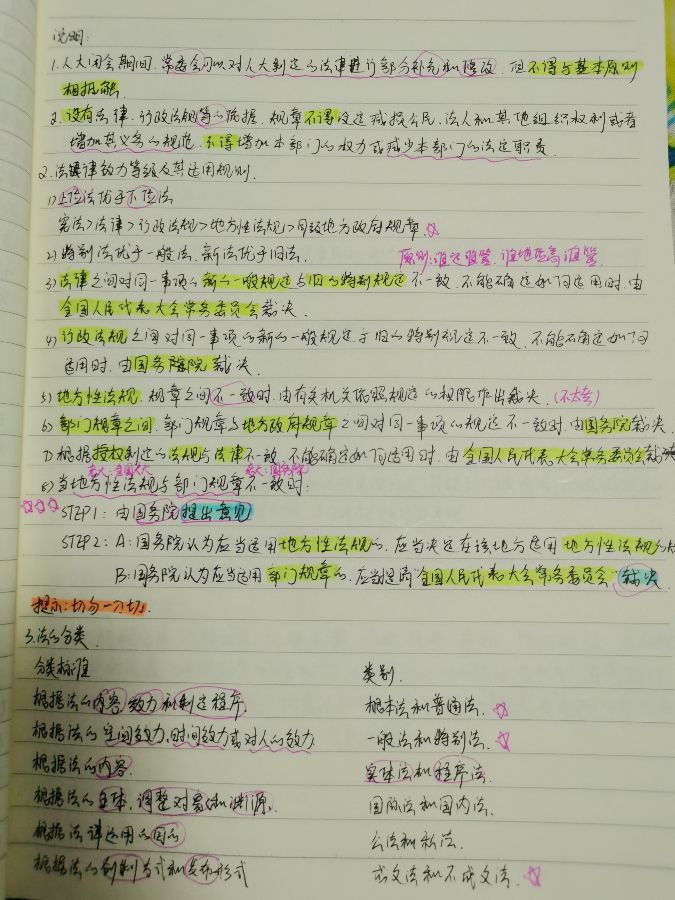 说明:
1.人大闭会期间,常委会可以对人大制定的法律进行部分补充和修改,但不得与基本原则
相抵触.
2.没有法律、行政法规等的依据,规章不得设定减损公民、法人和其他组织权利或者
增加其义务的规范,不得增加本部门的权力或减少本部门的法定职责.
2.法律效力等级及其适用规则.
1)上位法优于下位法
宪法>法律>行政法规>地方性法规>同级地方政府规章.☆
2)特别法优于一般法,新法优于旧法.
原则:谁定谁管,谁地位高谁管.
3)法律之间对同一事项的新的一般规定与旧的特别规定不一致,不能确定如何适用时,由
全国人民代表大会常务委员会裁决.
4)行政法规之间对同一事项的新的一般规定与旧的特别规定不一致,不能确定如何
适用时,由国务院裁决.
5)地方性法规、规章之间不一致时,由有关机关依照规定的权限作出裁决.(不太考)
6)部门规章之间、部门规章与地方政府规章之间对同一事项的规定不一致时,由国务院裁决.
7)根据授权制定的法规与法律不一致,不能确定如何适用时,由全国人民代表大会常务委员会裁决
8)当地方性法规与部门规章不一致时:
☆☆☆
STEP1:由国务院提出意见
STEP2:A:国务院认为应当适用地方性法规的,应当决定在该地方适用地方性法规的
B:国务院认为应当适用部门规章的,应当提请“全国人民代表大会常务委员会”裁决
提示:切勿一刀切.
3.法的分类
分类标准 类别.
根据法的内容、效力和制定程序. 根本法和普通法.☆
根据法的空间效力、时间效力或对人的效力 一般法和特别法.☆
根据法的内容. 实体法和程序法.
根据法的主体、调整对象和渊源. 国际法和国内法.
根据法律运用的目的 公法和私法.
根据法的创制方式和发布形式 成文法和不成文法.☆